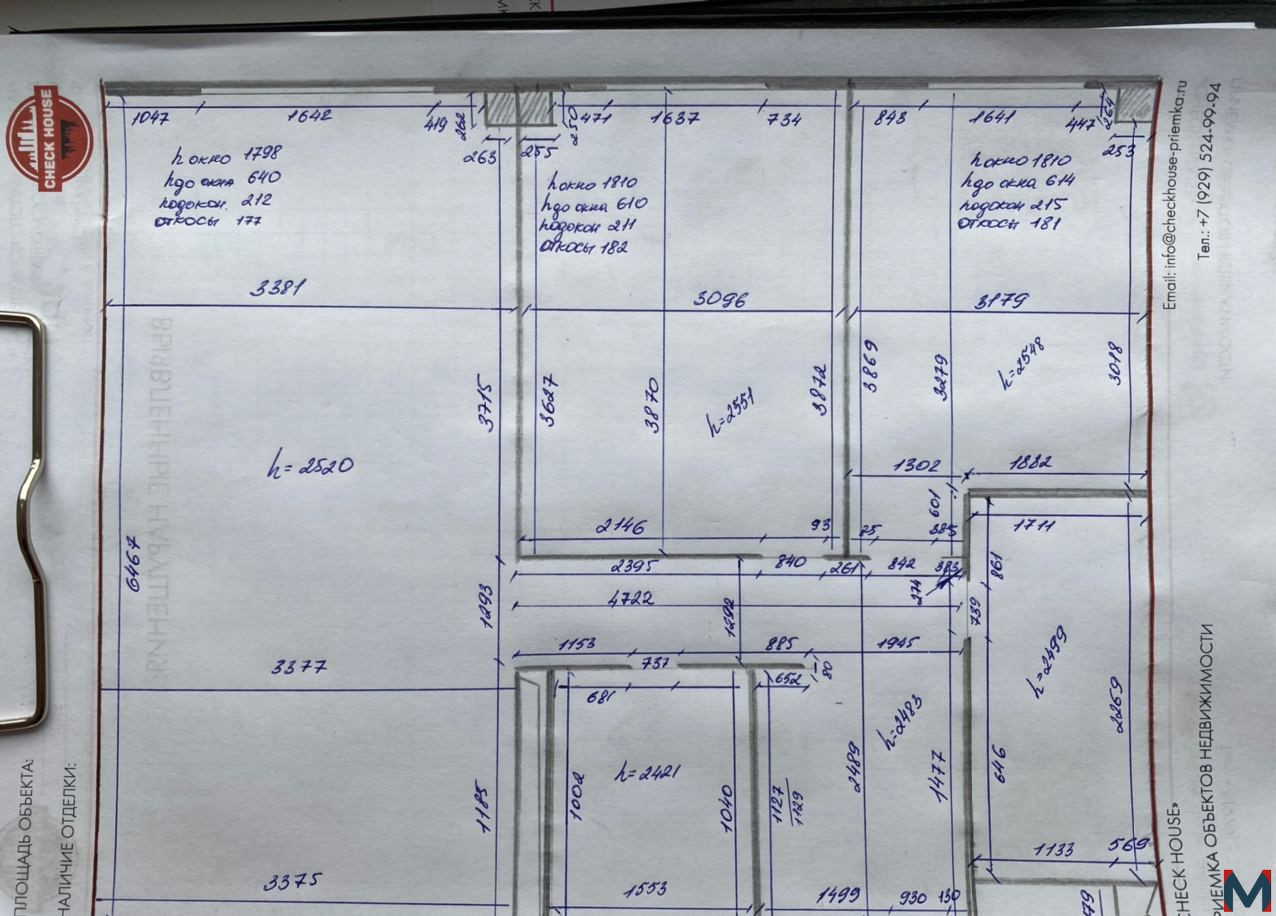 CHECK HOUSE
1047
1642
419
262
250
471
1637
734
843
1641
447
264
263
255
253
h окно 1798
hдо окна 640
подокон. 212
откосы 177
h окно 1810
hдо окна 610
подокон 211
откосы 182
h окно 1810
hдо окна 614
подокон 215
откосы 181
3381
3096
3179
3715
3627
3870
3872
3869
3279
3018
h=2551
h=2548
h=2520
1302
1882
601
2146
93
25
385
1711
6467
2395
840
261
842
383
861
274
1293
4722
1292
739
1153
737
885
1945
80
3377
681
652
h=2499
2269
h=2483
h=2421
1002
1040
1127
1129
2489
1477
646
1185
1133
569
3375
1553
1499
930
130
79
ПЛОЩАДЬ ОБЪЕКТА:
НАЛИЧИЕ ОТДЕЛКИ:
ВЫЯВЛЕННЫЕ НАРУШЕНИЯ:
Email: info@checkhouse-priemka.ru
Тел.: +7 (929) 524-99-94
HECK HOUSE»
ИЕМКА ОБЪЕКТОВ НЕДВИЖИМОСТИ
M